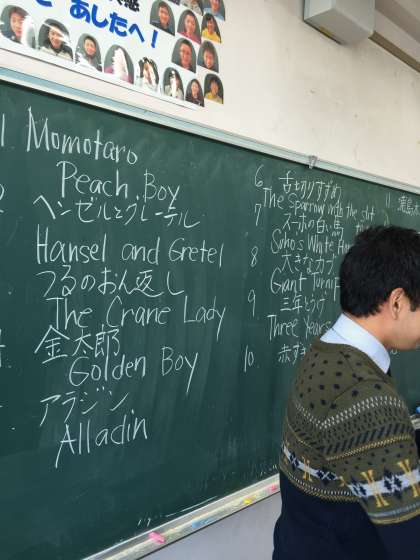 あしたへ!
1 Momotaro
Peach Boy
ヘンゼルとグレーテル
Hansel and Gretel
つるのおん返し
The Crane Lady
金太郎
Golden Boy
アラジン
Alladin
6 舌切りすずめ
The Sparrow with the slit
7 スーホの白い馬
Suho's White
8 大きなカブ
Giant Turnip
9 三年とうげ
Three Years
10. 赤ず
11